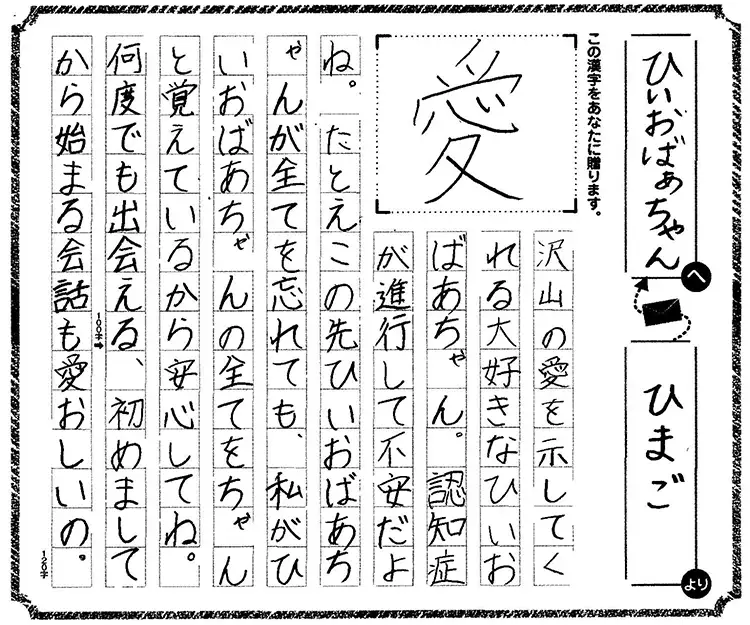 ひぃおばぁちゃん
へ
ひまご
より
この漢字をあなたに贈ります。
愛
沢山の愛を示してく
れる大好きなひいお
ばあちゃん。認知症
が進行して不安だよ
ね。たとえこの先ひいおばあち
ゃんが全てを忘れても、私がひ
いおばあちゃんの全てをちゃん
と覚えているから安心してね。
何度でも出会える、初めまして
から始まる会話も愛おしいの。
100字
120字